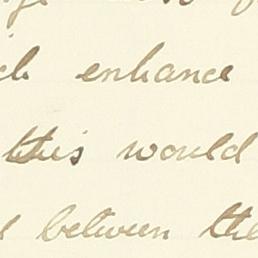 enhance
this would
between the